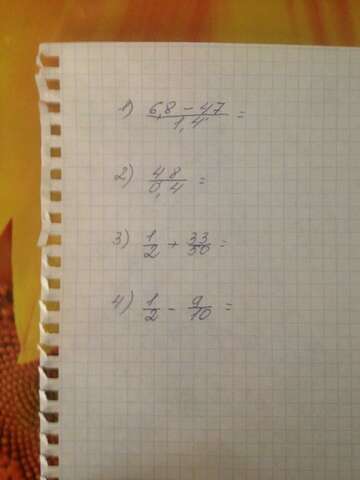 1) 6,8 - 47 / 1,4 =
2) 48 / 0,4 =
3) 1/2 + 33/50 =
4) 1/2 - 9/10 =